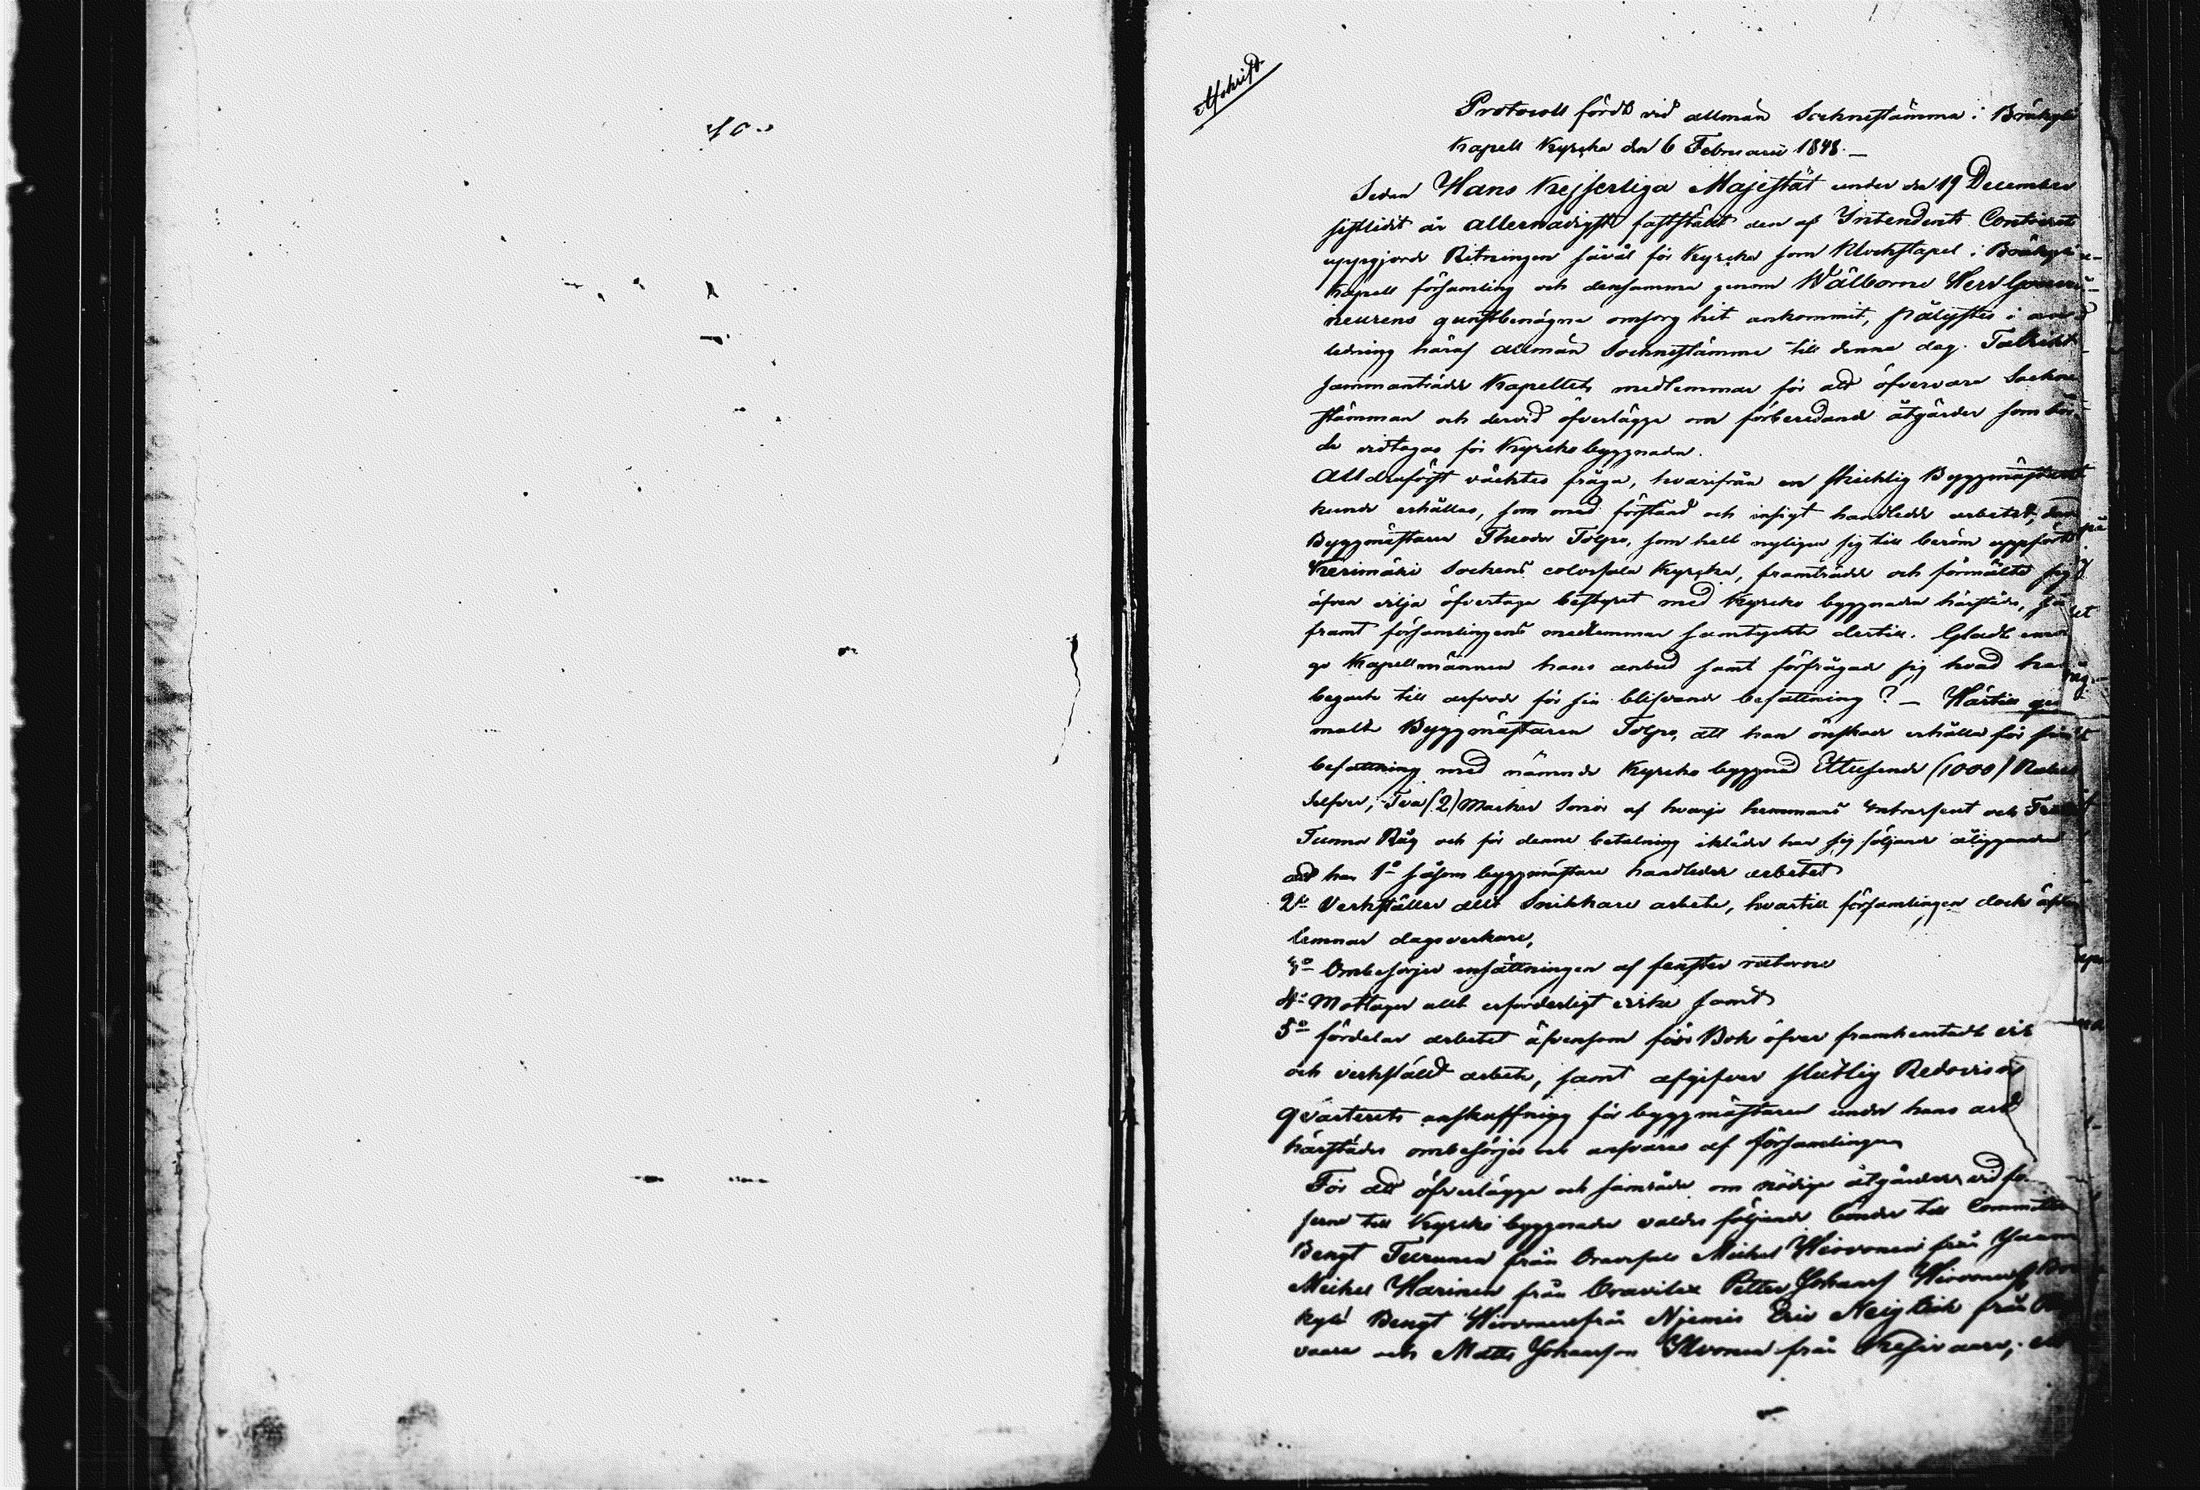 Afskrift
Protocoll fördt vid allmän Sochnestämma i Bräkylä
Kapell Kyrcka den 6 Februarii 1848. —
Sedan Hans Kejserliga Majestät under den 19 December
sistledit år allernådigst fastställt den af Intendents Contoiret
uppgjorde Ritningen såväl för Kyrcka som Klockstapel i Bräkylä
Kapell församling och densamma genom Wälborne Herr Gouver
neurens gunstbenägna omsorg hit ankommit, pålystes i an
ledning häraf allmän Sochnestämma till denna dag. Talrikt
sammanträdde Kapellets medlemmar för att öfvervara Sockne
stämman och dervid öfverlägga om förberedande åtgärder som bör
de vidtagas för Kyrckobyggnaden.
Alldraförst väcktes fråga, hvarifrån en skicklig Byggmästare
kunde erhållas, som med förstånd och insigt handledde arbetet, då
Byggmästaren Theodor Tolpo, som helt nyligen sig till beröm uppfört
Kerimäki Sockens colossala Kyrcka, framträdde och förmälte sig
äfven vilja öfvertaga bestyret med Kyrcko byggnaden härstädes, så
framt församlingens medlemmar samtyckte dertill. Gladt emot
go Kapellmännen hans anbud samt förfrågade sig hvad han
begärte till arfvode för sin blifvande befattning? — Härtill gen
mälte Byggmästaren Tolpo, att han önskade erhålla för sin
befattning med nämnde Kyrcko byggnad Ettusende (1000) Rubel
Silfver, Två (2) Marker Smör af hvarje hemmans Intressent och
Tunnor Råg och för denna betalning ikläder han sig följande åligganden
att han 1:o såsom byggmästare handleder arbetet
2:o Verkställer allt Snickare arbete, hvartill församlingen dock äfven
lemnar dagsverkare,
3:o Ombesörjer insättningen af fenster rutorne
4:o Mottager allt erforderligt virke samt
5:o fördelar arbetet äfvensom förer Bok öfver framhemtadt virke
och verkstäldt arbete, samt afgifver slutlig Redovisning
Qvarterets anskaffning för byggmästaren under hans arbete
härstädes ombesörjes och ansvaras af församlingen
För att öfverlägga och samråda om nödiga åtgärder vid
serna till Kyrcko byggnaden valdes följande bönder till Committe
Bengt Turunen från Oravisalo Michel Hirvonen från
Michel Harinen från Oravilax Petter Johansf Hirvonen från Brä
kylä Bengt Hirvonen från Njemis Eric Neiglick från
vaara och Matts Johansson Ilvonen från Kesivaara,